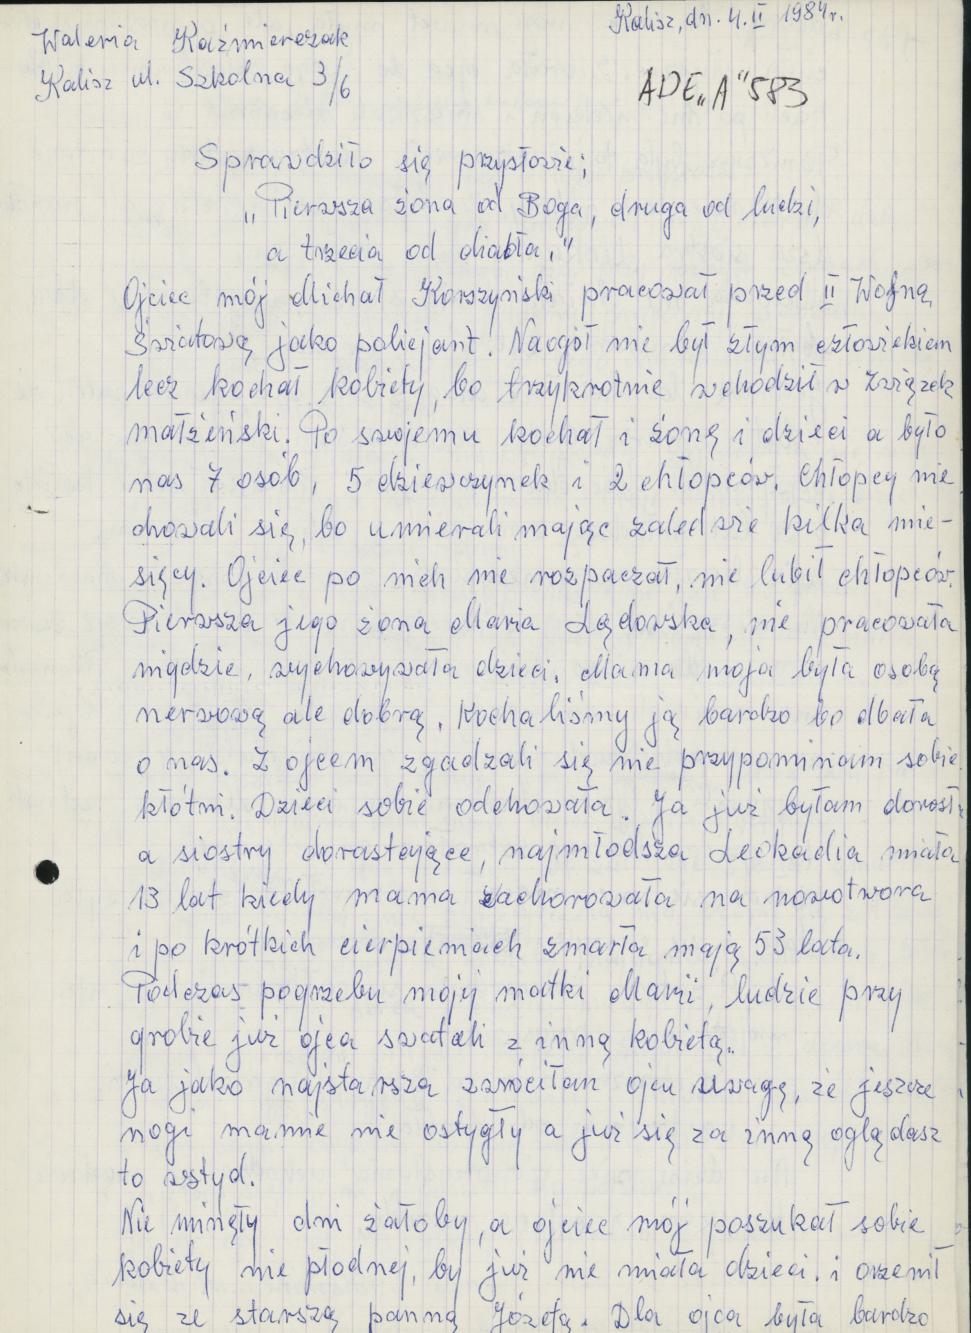 Waleria Kaźmierczak
Kalisz, dn. 4.II 1984r.
Kalisz ul. Szkolna 3/6
ADE „A" 583
Sprawdziło się przysłowie;
„Pierwsza żona od Boga, druga od ludzi,
a trzecia od diabła."
Ojciec mój Michał Korszyński pracował przed II Wojną
Światową jako policjant. Naogół nie był złym człowiekiem
lecz kochał kobiety, bo trzykrotnie wchodził w związek
małżeński. Po swojemu kochał i żonę i dzieci a było
nas 7 osób, 5 dziewczynek i 2 chłopców. Chłopcy nie
chowali się, bo umierali mając zaledwie kilka mie-
sięcy. Ojciec po nich nie rozpaczał, nie lubił chłopców.
Pierwsza jego żona Maria Lądowska, nie pracowała
nigdzie, wychowywała dzieci. Mama moja była osobą
nerwową ale dobrą. Kochaliśmy ją bardzo bo dbała
o nas. Z ojcem zgadzali się nie przypominam sobie
kłótni. Dzieci sobie odchowała. Ja już byłam dorosła
a siostry dorastające, najmłodsza Leokadia miała
13 lat kiedy mama zachorowała na nowotwora
i po krótkich cierpieniach zmarła mają 53 lata.
Podczas pogrzebu mojy matki Marii, ludzie przy
grobie już ojca swatali z inną kobietą.
Ja jako najstarsza zwróciłam ojcu uwagę, że jeszcze
nogi mamie nie ostygły a już się za inną oglądasz
to wstyd.
Nie minęły dni żałoby, a ojciec mój poszukał sobie
kobiety nie płodnej, by już nie miała dzieci. i ożenił
się ze starszą panną Józefą. Dla ojca była bardzo